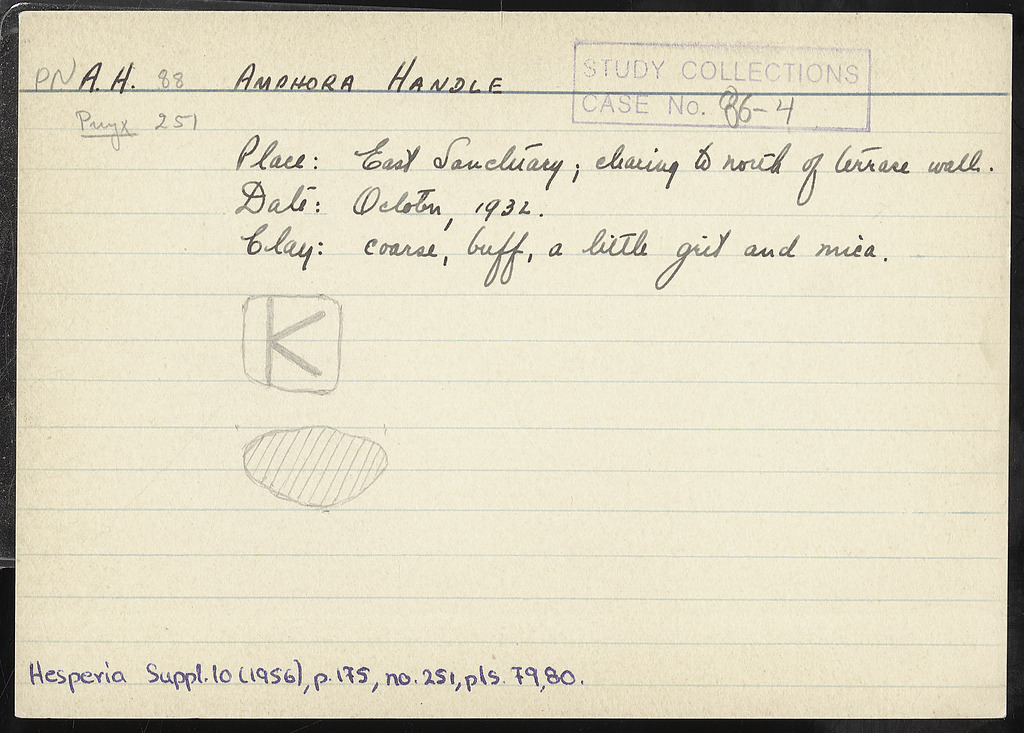 PN A.H. 88 AMPHORA HANDLE
STUDY COLLECTIONS
CASE No. 86-4
Pnyx 251
Place: East Sanctuary; clearing to north of terrace wall.
Date: October, 1932.
Clay: coarse, buff, a little grit and mica.
K
Hesperia Suppl. 10 (1956), p. 175, no. 251, pls. 79,80.